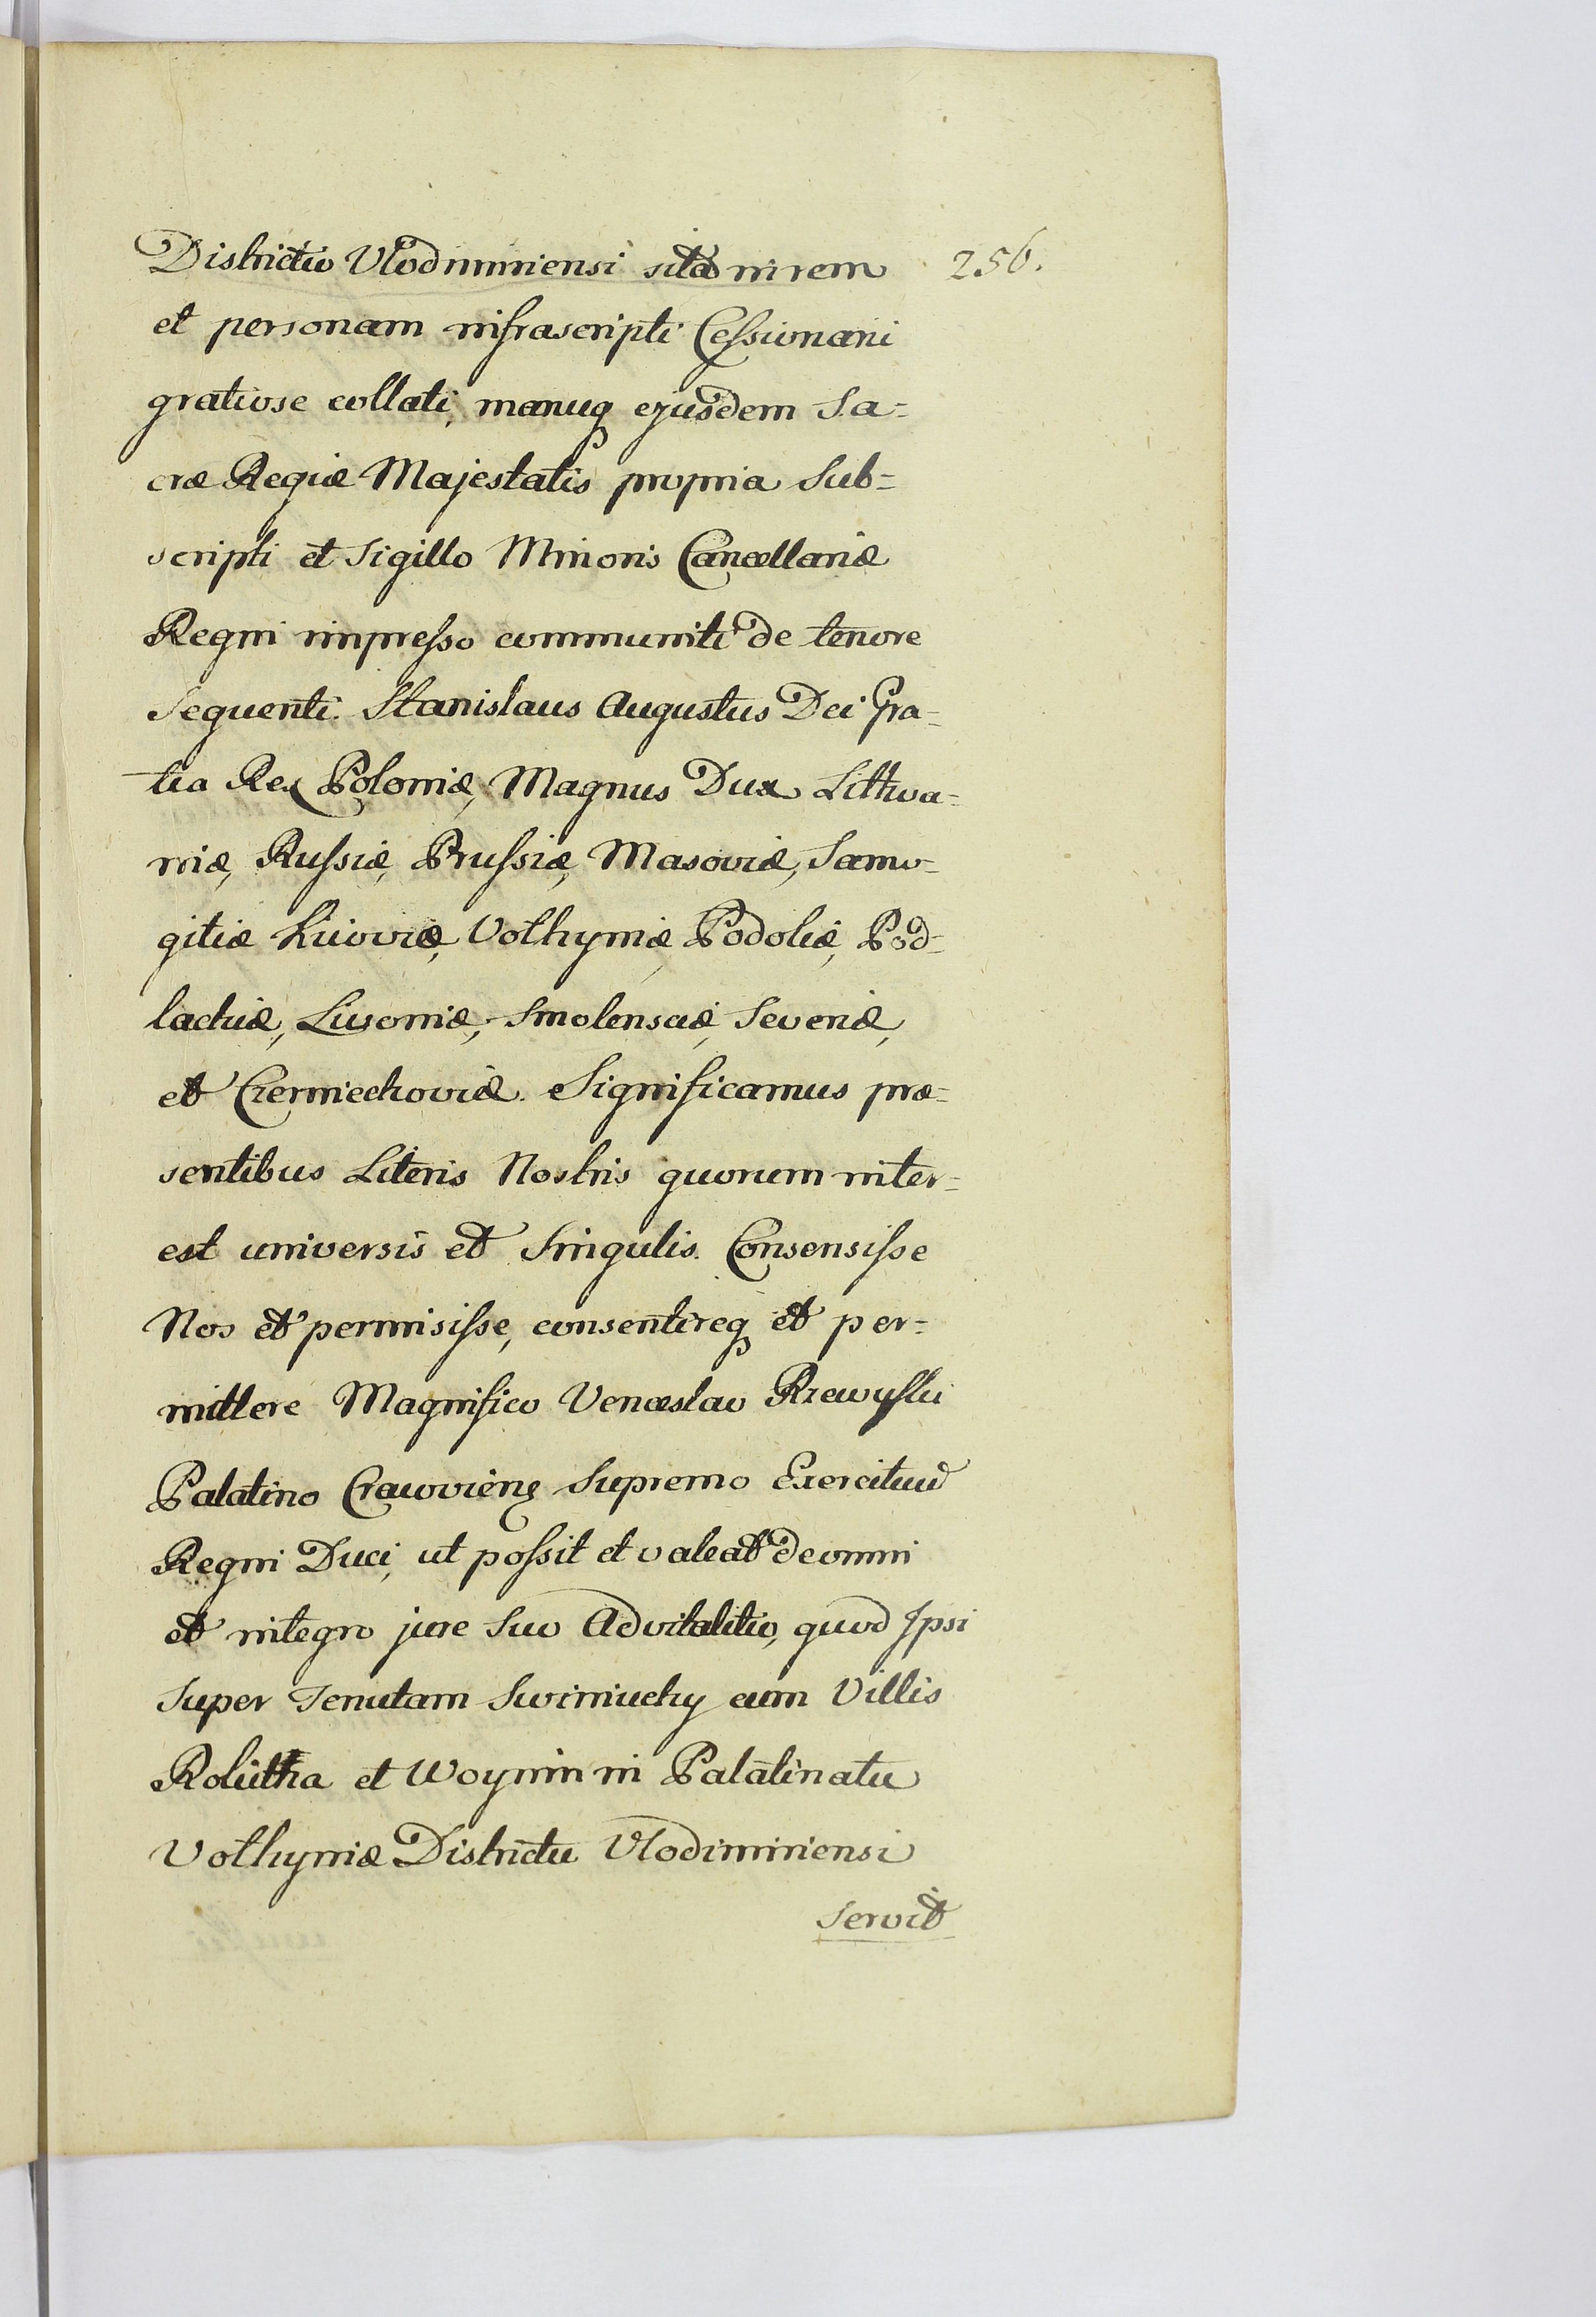 Districtu Vlodimiriensi sita in rem 256.
et personam infrascripti Cessionarii
gratiose collati, manuq ejusdem Sa=
cræ Regiæ Majestatis propria Sub=
scripti et Sigillo Minoris Cancellariæ
Regni impresso communiti de tenore
Sequenti. Stanislaus Augustus Dei Gra=
tia Rex Poloniæ, Magnus Dux Lithva=
niæ, Russiæ, Prussiæ, Masoviæ, Samo=
gitiæ Kiioviæ, Volhyniæ, Podoliæ, Pod=
lachiæ, Livoniæ, Smolensciæ, Severiæ,
et Czerniechoviæ. Significamus præ=
sentibus Literis Nostris quorum inter=
est universis et Singulis. Consensisse
Nos et permisisse, consentireq et per=
mittere Magnifico Venceslao Rzewuski
Palatino Cracovieng Supremo Exercituū
Regni Duci, ut possit et valeat de omni
et integro jure Suo Advitalitio, quod Ipsi
Super Tenutam Swiniuchy cum Villis
et Woynin in Palatinatu
Volhyniæ Districtu Vlodimiriensi
Servit